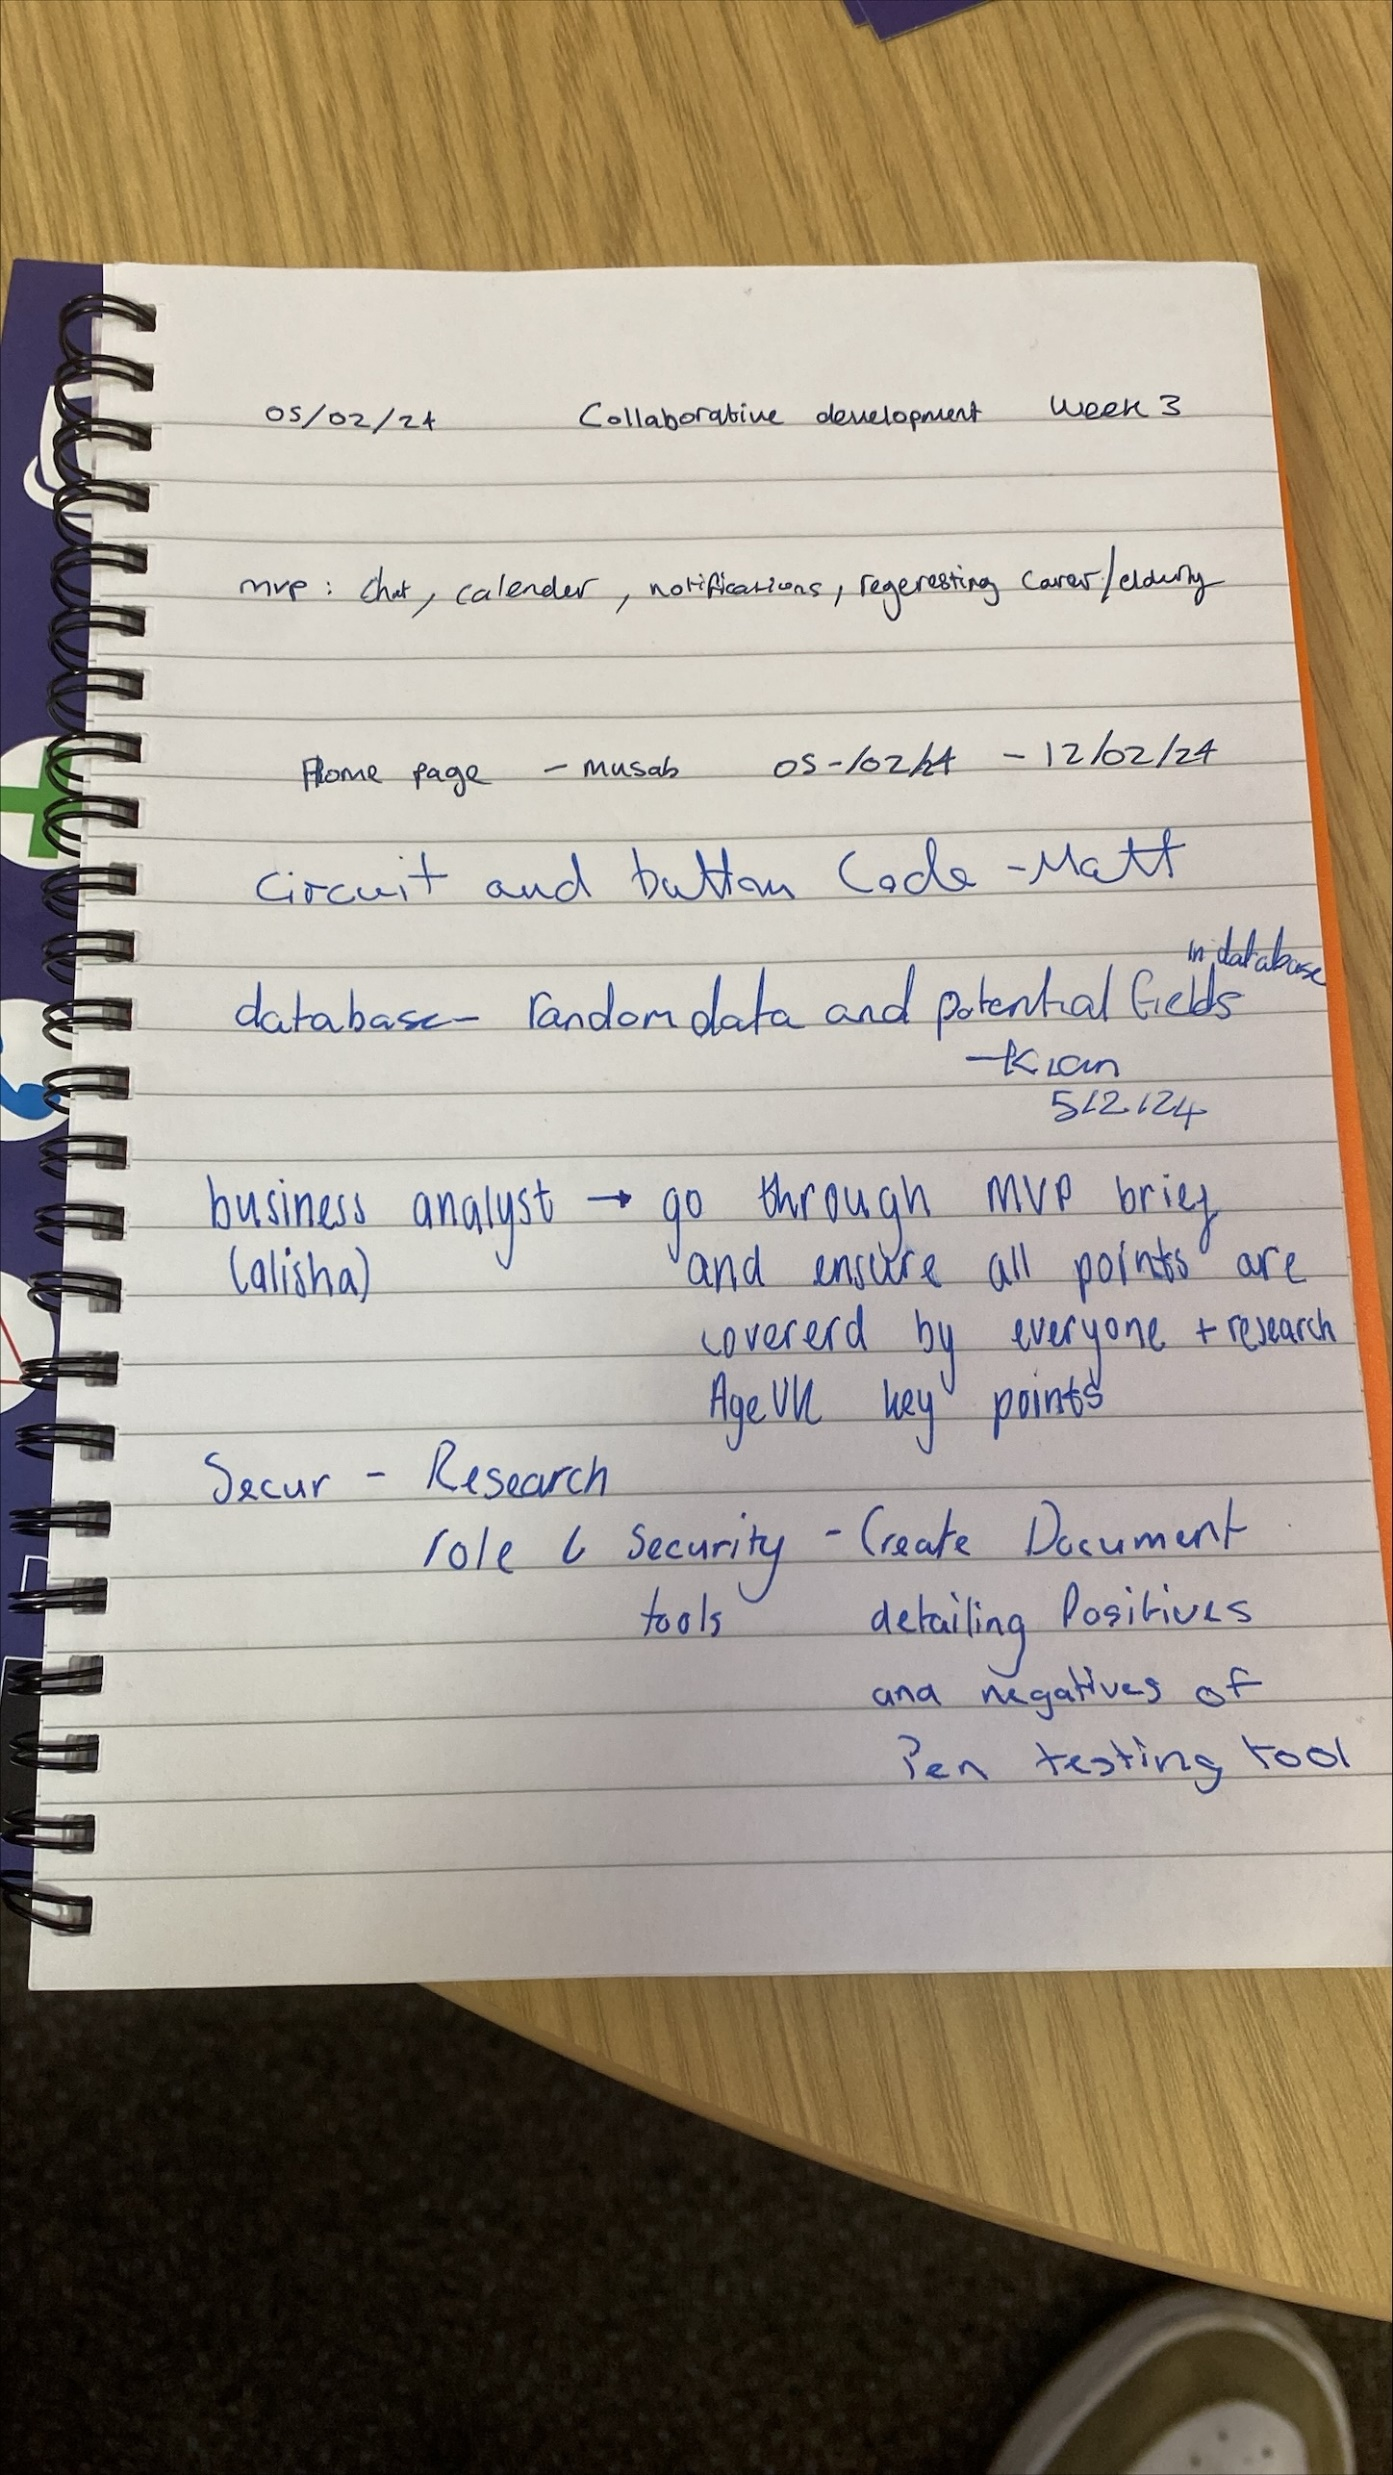 05/02/24 Collaborative development Week 3
mvp : chat, calender, notifications, regeresting carer/elderly
Home page - musab 05-/02/24 - 12/02/24
Circuit and button Code - Matt
in database
database - random data and potential fields
- Kian
5/2/24
business analyst → go through MVP brief
(alisha) and ensure all points are
covererd by everyone + research
Age UK key points
Secur - Research
role & Security - Create Document
tools detailing Positives
and negatives of
Pen testing tool